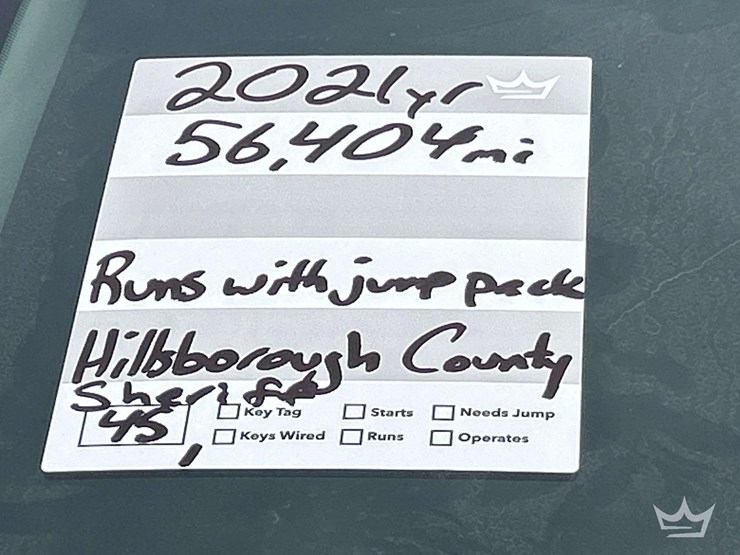 2021yr
56,404mi
Runs with jump pack
Hillsborough County
Sheriff
45,
Key Tag Starts Needs Jump
Keys Wired Runs Operates